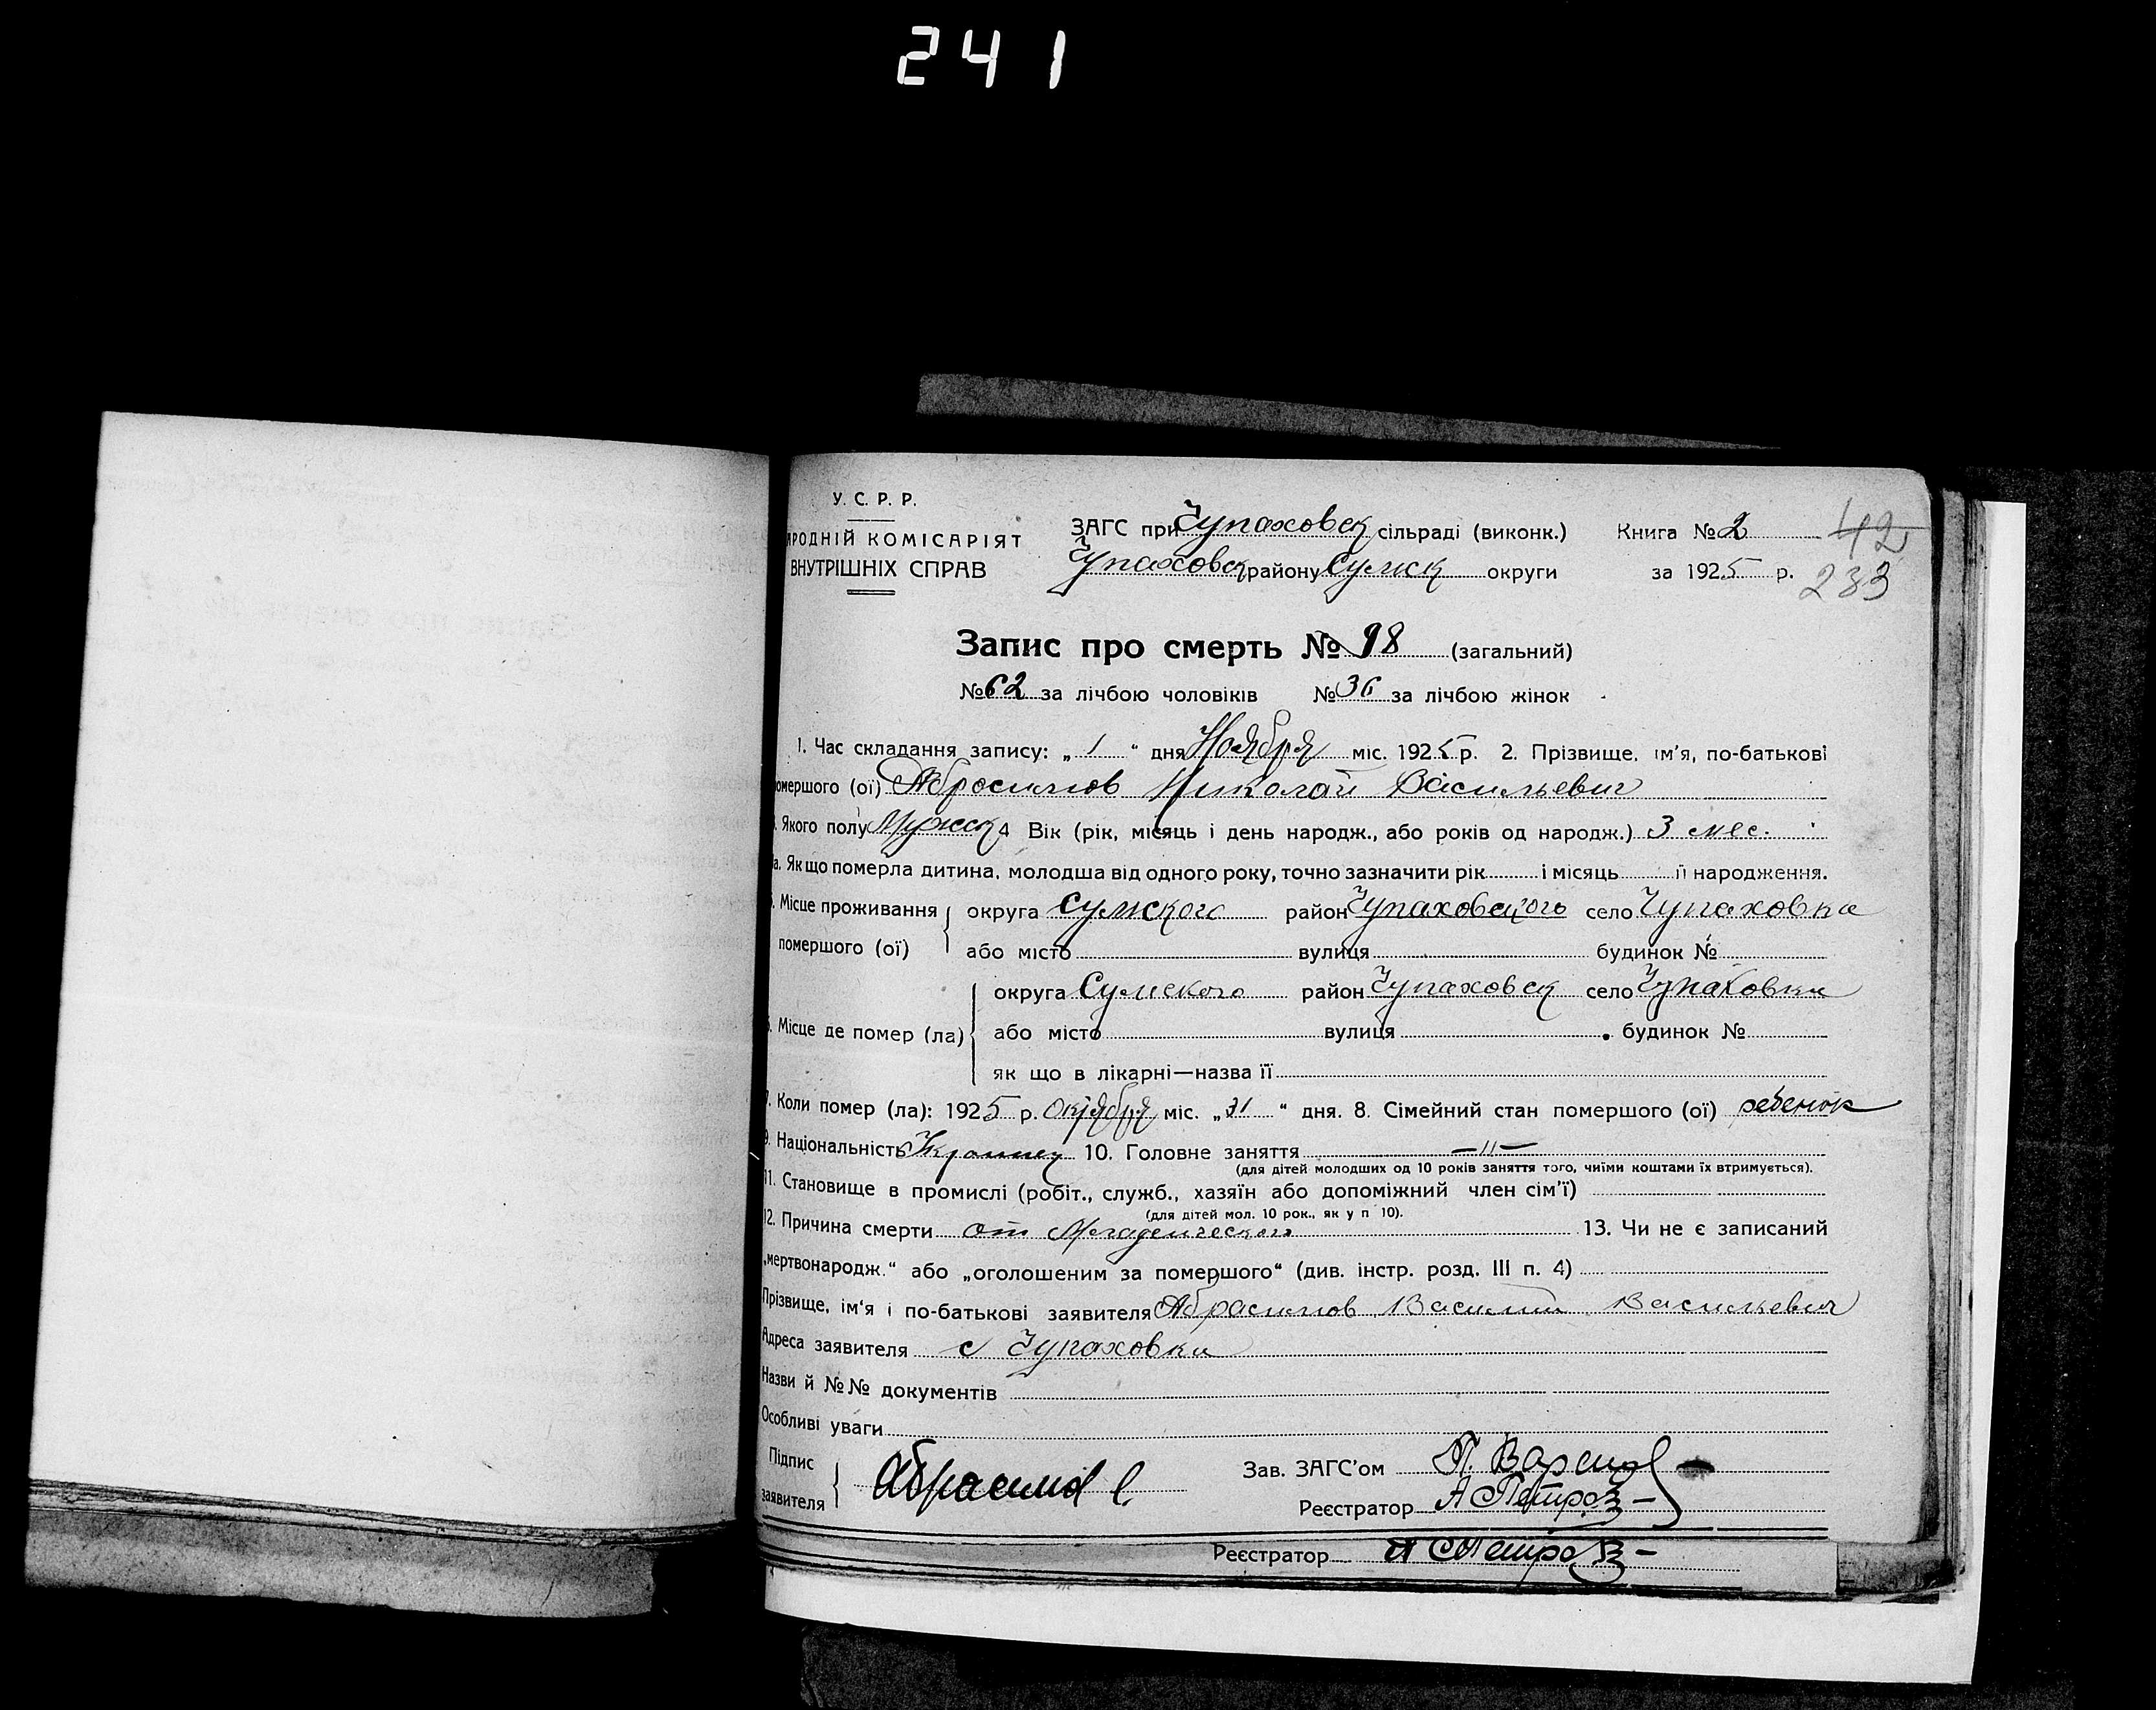 241
У. С. Р. Р.
РОДНІЙ КОМІСАРІЯТ
ВНУТРІШНІХ СПРАВ
ЗАГС при Чупаховск сільраді (виконк.) Книга № 2 42
Чупаховск району Сумск округи за 1925 р. 233
Запис про смерть № 98 (загальний)
№ 62 за лічбою чоловіків № 36 за лічбою жінок
1. Час складання запису: „ 1 “ дня Ноября міс. 1925 р. 2. Прізвище, ім’я, по-батькові
омершого (ої) Абросимов Николай Васильевич
Якого полу Мужск 4 Вік (рік, місяць і день народж., або років од народж.) 3 мес.
а. Як що померла дитина, молодша від одного року, точно зазначити рік і місяць її народження.
Місце проживання помершого (ої) округа Сумского район Чупаховского село Чупаховка
або місто вулиця будинок №
Місце де помер (ла) округа Сумского район Чупаховск село Чупаховка
або місто вулиця будинок №
як що в лікарні—назва її
7. Коли помер (ла): 1925 р. октября міс. „ 31 “ дня. 8. Сімейний стан помершого (ої) ребенок
9. Національність Украинец 10. Головне заняття —〃—
(для дітей молодших од 10 років заняття того, чиїми коштами їх втримується).
11. Становище в промислі (робіт., служб., хазяїн або допоміжний член сім’ї)
(для дітей мол. 10 рок., як у п 10).
12. Причина смерти от Младенческого 13. Чи не є записаний
„мертвонародж.“ або „оголошеним за помершого“ (див. інстр. розд. III п. 4)
Прізвище, ім‘я і по-батькові заявителя Абрасимов Василий Васильевич
Адреса заявителя с Чупаховка
Назви й №№ документів
Особливі уваги
Підпис заявителя Абрасимов
Зав. ЗАГС’ом П.
Реєстратор А Петров
Реєстратор А Петров